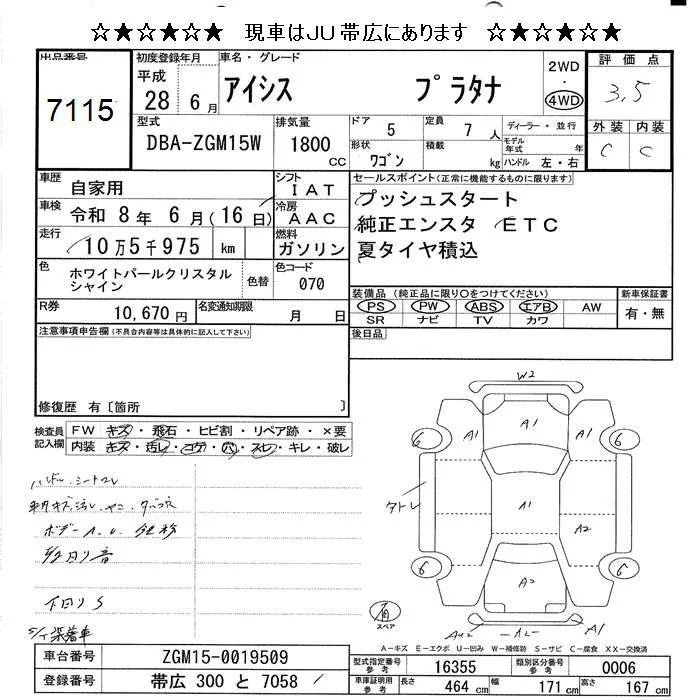 ☆★☆★☆★ 現車はJU帯広にあります ☆★☆★☆★
出品番号
7115
初度登録年月
平成
28 年 6 月
車名・グレード
アイシス プラタナ
2WD
・
4WD
評価点
3.5
外装 内装
C C
型式
DBA-ZGM15W
排気量
1800
CC
ドア 5
定員 7 人
形状 ワゴン
積載 kg
ディーラー・並行
モデル年式 年
ハンドル 左・右
車歴 自家用
シフト IAT
車検 令和 8 年 6 月(16日)
冷房 AAC
走行 10万5千975 km
燃料 ガソリン
色 ホワイトパールクリスタルシャイン
色替
色コード 070
R券 10,670 円
名変通知期限 月 日
セールスポイント(正常に機能するものに限ります)
プッシュスタート
純正エンスタ ETC
夏タイヤ積込
装備品(純正品に限り○をつけてください)
PS PW ABS エアB AW
SR ナビ TV カワ
新車保証書
有・無
後日品
注意事項申告欄(不具合内容等は具体的に記入して下さい)
修復歴 有〔箇所 〕
検査員記入欄
FW キズ・飛石・ヒビ割・リペア跡・×要
内装 キズ・汚レ・コゲ・穴・スレ・キレ・破レ
ハンドル、シートスレ
ボデー A.U.
下回りS
W2
A1
A1
A1
A1
A2
A2
6
6
6
6
タトレ
A1
有
スペア
A-キズ E-エクボ U-凹み W-補修跡 S-サビ C-腐食 XX-交換済
車台番号 ZGM15-0019509
登録番号 帯広 300 と 7058
型式指定番号 参考 16355
類別区分番号 参考 0006
車庫証明用 参考
長さ 464 cm
幅 171 cm
高さ 167 cm